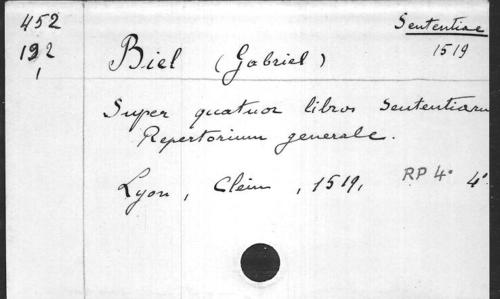 452
192
1
Sententiae
1519
Biel (Gabriel)
Super quatuor libros Sententiaru
Repertorium generale.
Lyon, Clein, 1519, RP 4° 4°